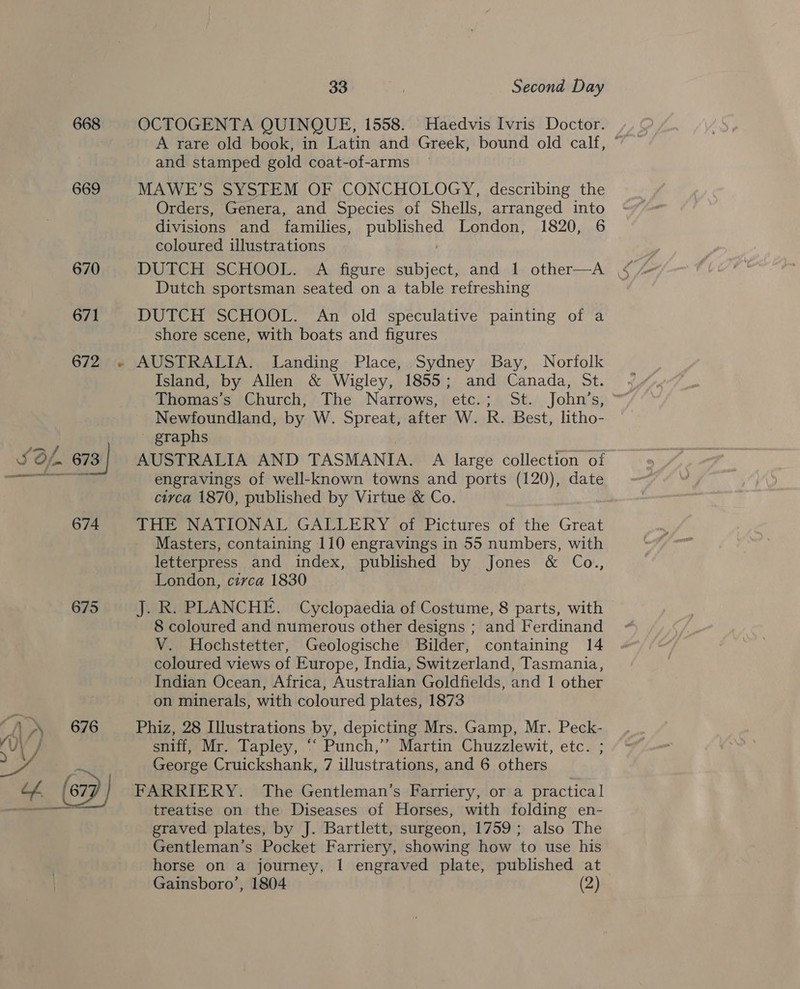 33 Second Day
668 OCTOGENTA QUINQUE, 1558. Haedvis Ivris Doctor.
A rare old book, in Latin and Greek, bound old calf,
and stamped gold coat-of-arms
669 MAWE'S SYSTEM OF CONCHOLOGY, describing the
Orders, Genera, and Species of Shells, arranged into
divisions and families, published London, 1820, 6
coloured illustrations
670 DUTCH SCHOOL. A figure subject, and 1 other—A
Dutch sportsman seated on a table refreshing
671 DUTCH SCHOOL. An old speculative painting of a
shore scene, with boats and figures
672 AUSTRALIA. Landing Place, Sydney Bay, Norfolk
Island, by Allen & Wigley, 1855; and Canada, St.
Thomas's Church, The Narrows, etc.; St. John's,
Newfoundland, by W. Spreat, after W. R. Best, litho-
graphs
673 AUSTRALIA AND TASMANIA. A large collection of
engravings of well-known towns and ports (120), date
circa 1870, published by Virtue & Co.
674 THE NATIONAL GALLERY of Pictures of the Great
Masters, containing 110 engravings in 55 numbers, with
letterpress and index, published by Jones & Co.,
London, circa 1830
675 J. R. PLANCHE. Cyclopaedia of Costume, 8 parts, with
8 coloured and numerous other designs ; and Ferdinand
V. Hochstetter, Geologische Bilder, containing 14
coloured views of Europe, India, Switzerland, Tasmania,
Indian Ocean, Africa, Australian Goldfields, and 1 other
on minerals, with coloured plates, 1873
676 Phiz, 28 Illustrations by, depicting Mrs. Gamp, Mr. Peck-
sniff, Mr. Tapley, “ Punch,” Martin Chuzzlewit, etc. ;
George Cruickshank, 7 illustrations, and 6 others
677 FARRIERY. The Gentleman's Farriery, or a practical
treatise on the Diseases of Horses, with folding en-
graved plates, by J. Bartlett, surgeon, 1759; also The
Gentleman's Pocket Farriery, showing how to use his
horse on a journey, 1 engraved plate, published at
Gainsboro', 1804 (2)